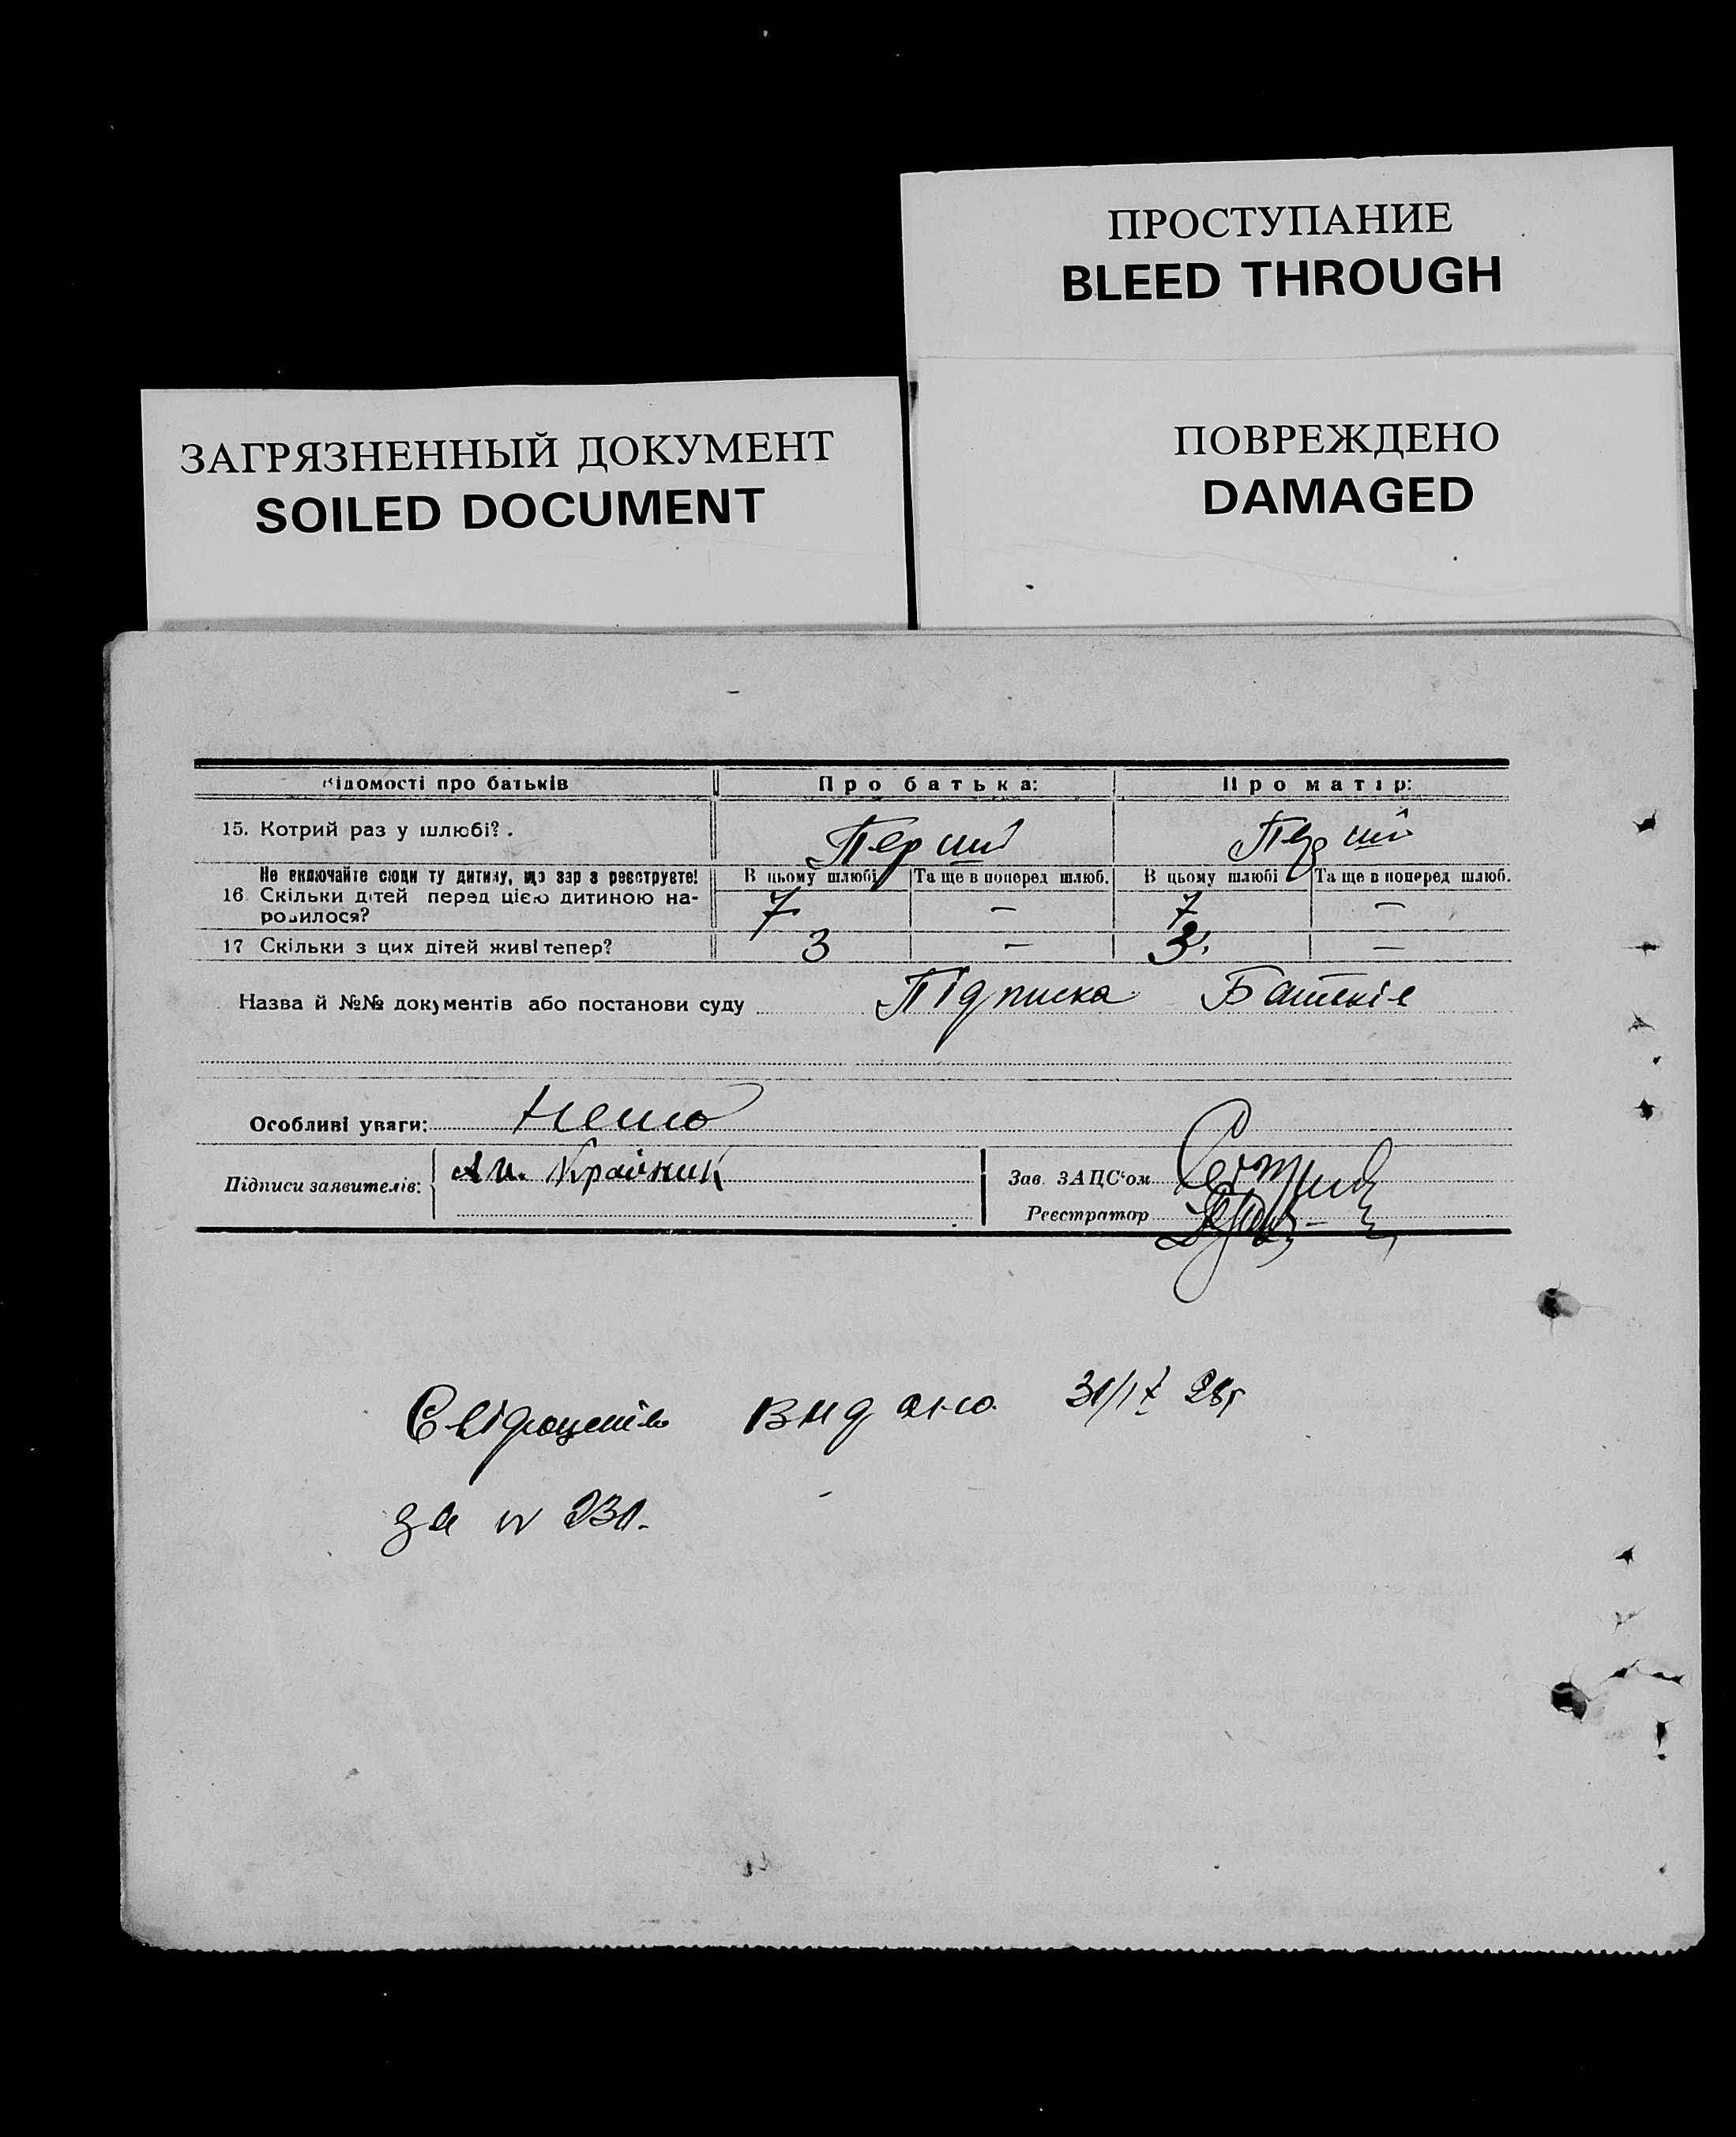 ПРОСТУПАНИЕ
BLEED THROUGH
ЗАГРЯЗНЕННЫЙ ДОКУМЕНТ
SOILED DOCUMENT
ПОВРЕЖДЕНО
DAMAGED
Відомості про батьків Про батька: Про матір:
15. Котрий раз у шлюбі? . Перший Перший
Не включайте сюди ту дитину, що зараз реєструєте! В цьому шлюбі Та ще в поперед шлюб. В цьому шлюбі Та ще в поперед шлюб.
16 Скільки дітей перед цією дитиною на-
родилося? 7 — 7 —
17 Скільки з цих дітей живі тепер? 3 — 3 —
Назва й №№ документів або постанови суду Підписка Батьків
Особливі уваги: Немо
Підписи заявителів: Ам. Крайник Зав. ЗАЦС'ом
Реєстратор
Свідоцтво видано 28р
за № 231.